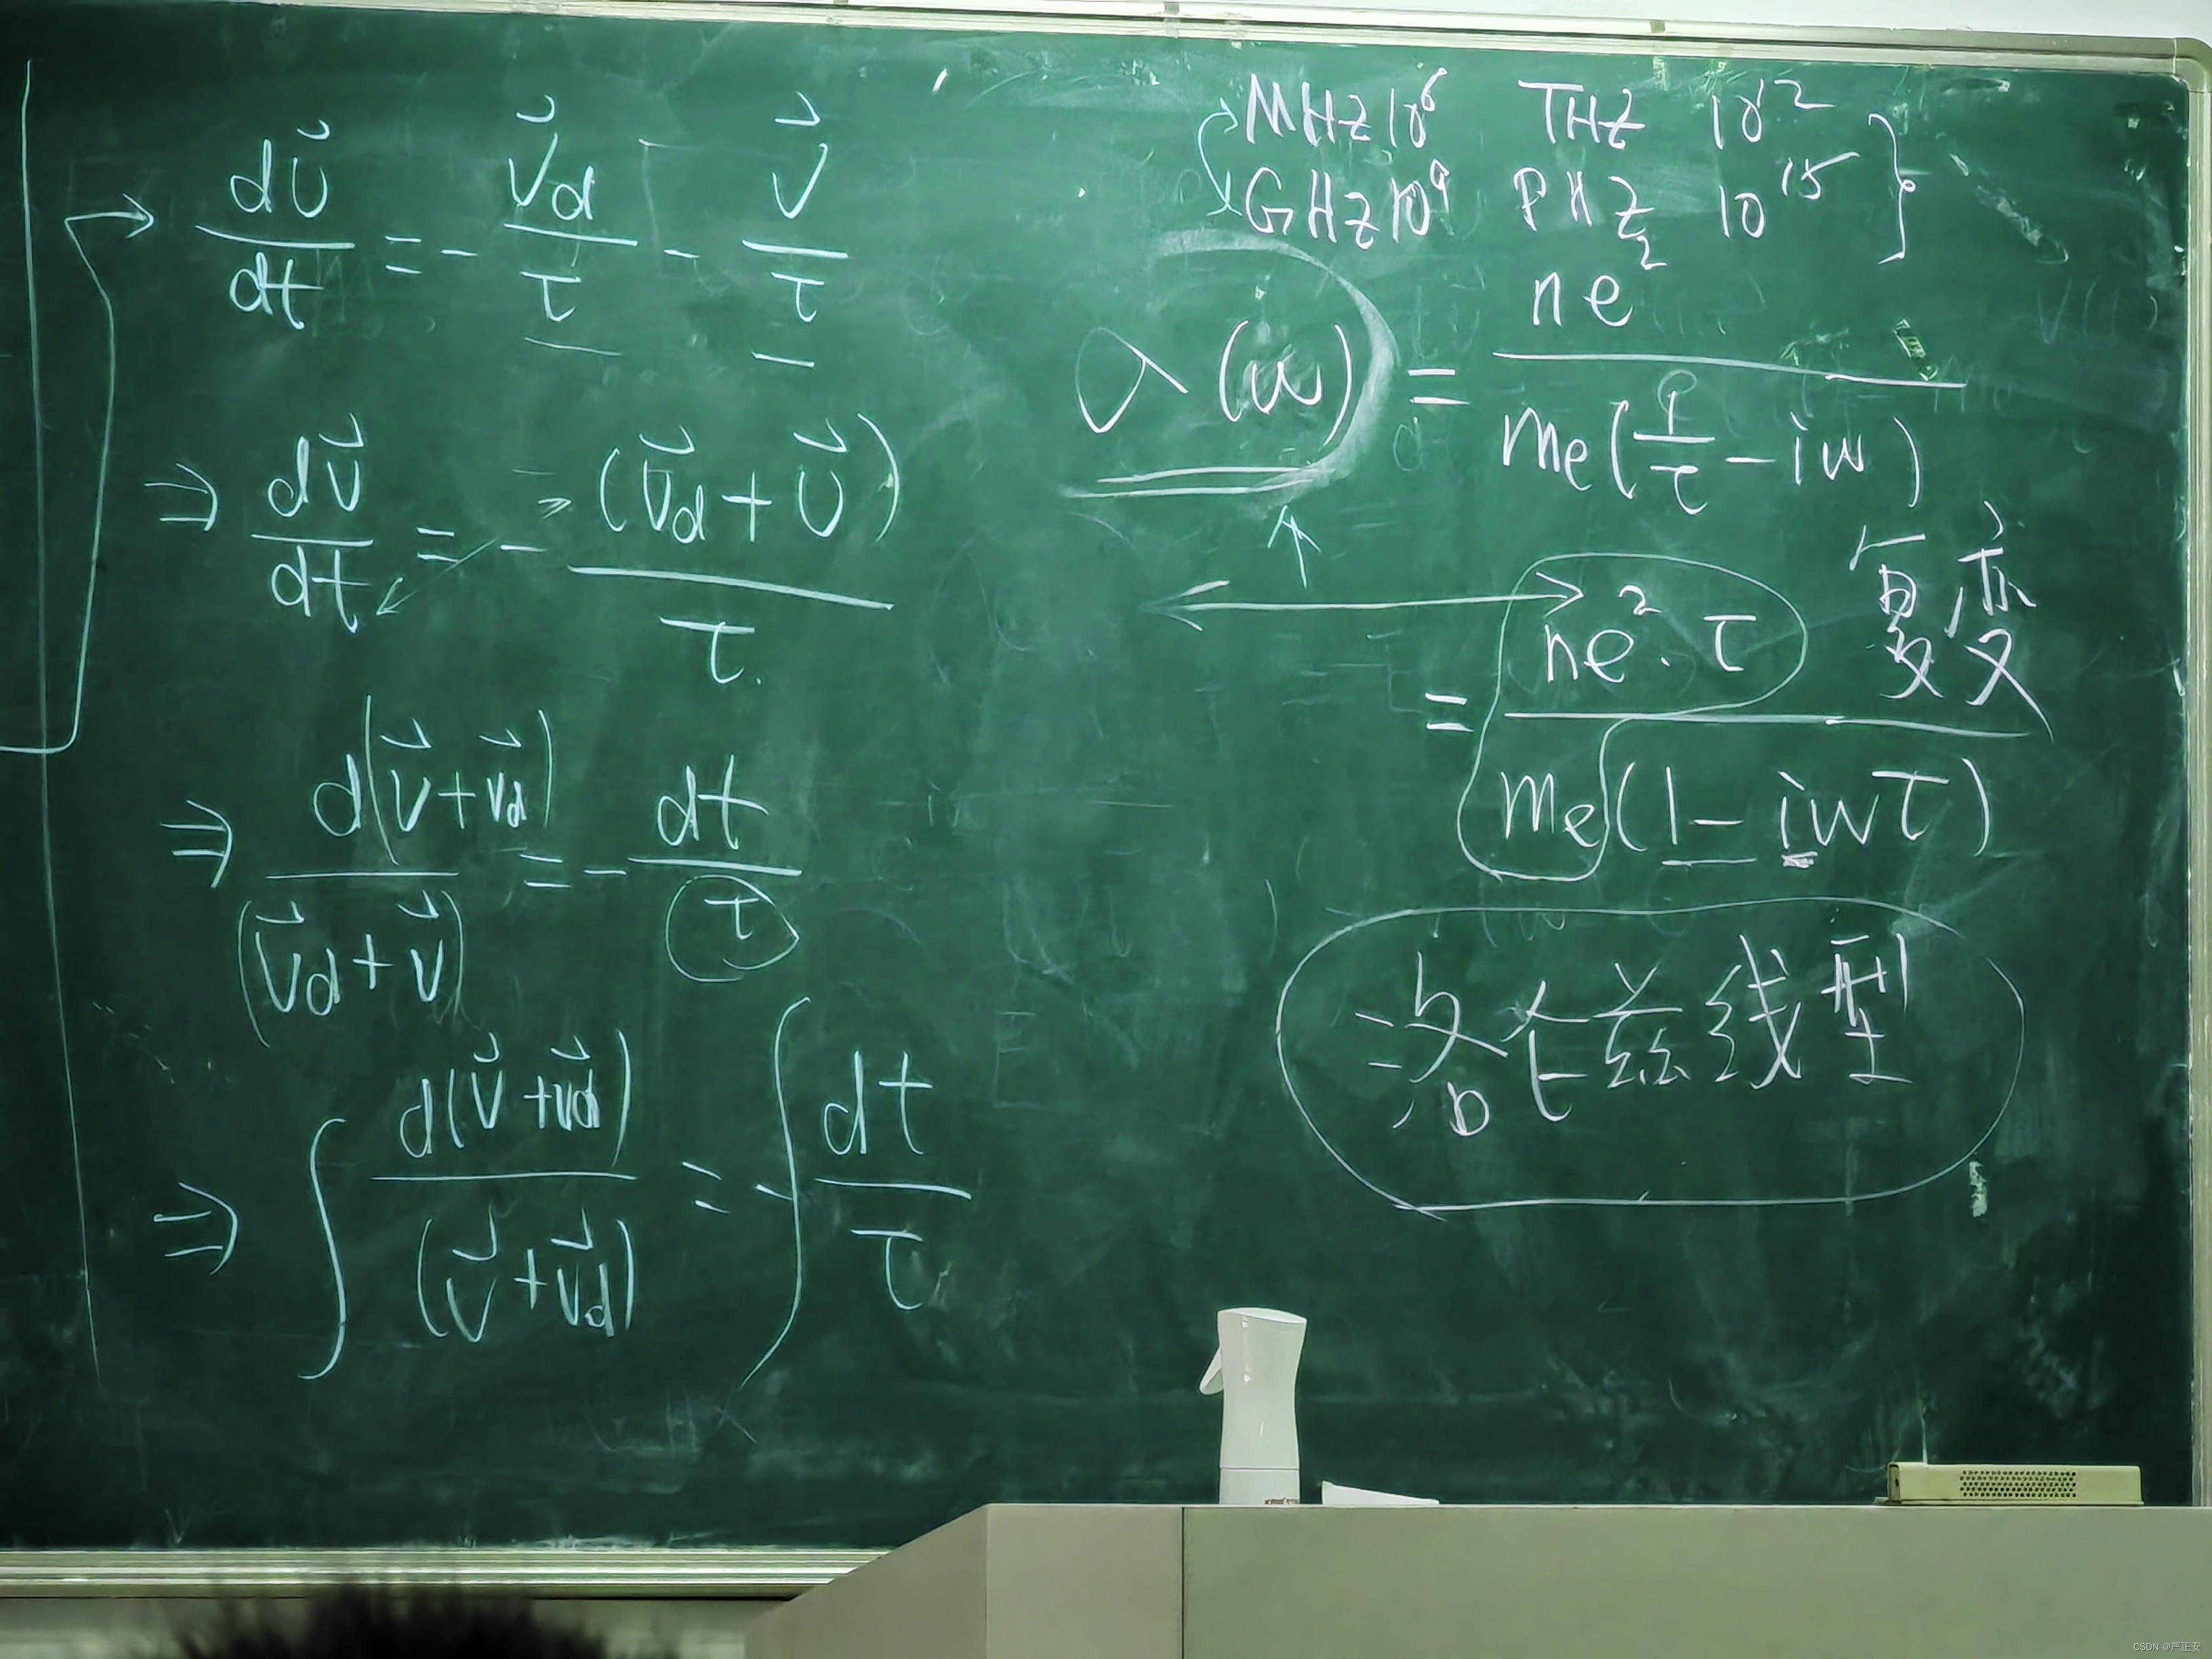 dv⃗/dt = - v⃗d/τ - v⃗/τ
⇒ dv⃗/dt = - (v⃗d + v⃗)/τ
⇒ d(v⃗ + v⃗d)/(v⃗d + v⃗) = - dt/τ
⇒ ∫ d(v⃗ + v⃗d)/(v⃗ + v⃗d) = - ∫ dt/τ
MHz 10⁶ THz 10¹²
GHz 10⁹ PHz 10¹⁵
σ(ω) = ne²/me(1/τ - iω)
= ne²·τ/me(1 - iωτ)
复变
洛仑兹线型
CSDN @严正安